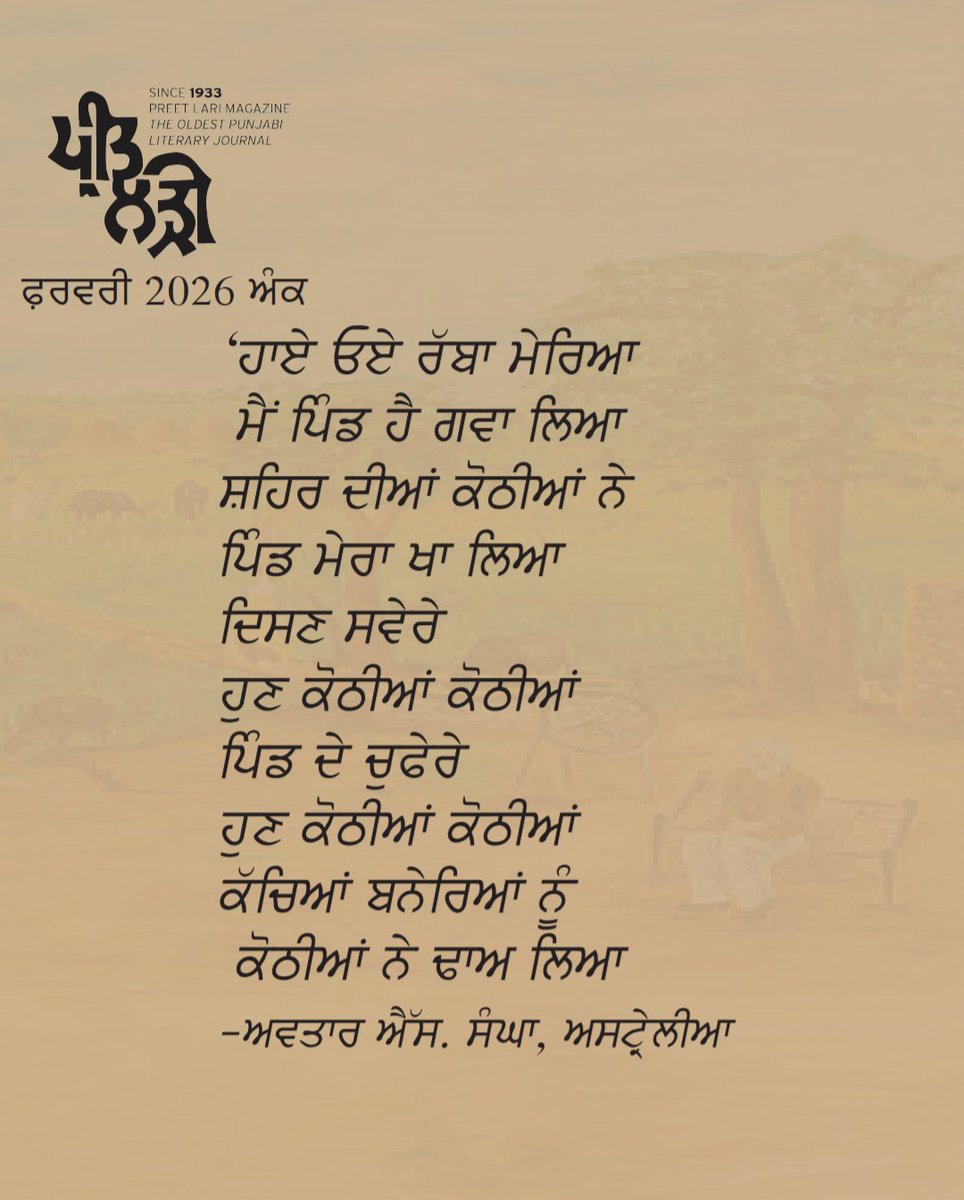 SINCE 1933
PREET LARI MAGAZINE
THE OLDEST PUNJABI
LITERARY JOURNAL
ਪ੍ਰੀਤ
ਲੜੀ
ਫ਼ਰਵਰੀ 2026 ਅੰਕ
‘ਹਾਏ ਓਏ ਰੱਬਾ ਮੇਰਿਆ
ਮੈਂ ਪਿੰਡ ਹੈ ਗਵਾ ਲਿਆ
ਸ਼ਹਿਰ ਦੀਆਂ ਕੋਠੀਆਂ ਨੇ
ਪਿੰਡ ਮੇਰਾ ਖਾ ਲਿਆ
ਦਿਸਣ ਸਵੇਰੇ
ਹੁਣ ਕੋਠੀਆਂ ਕੋਠੀਆਂ
ਪਿੰਡ ਦੇ ਚੁਫੇਰੇ
ਹੁਣ ਕੋਠੀਆਂ ਕੋਠੀਆਂ
ਕੱਚਿਆਂ ਬਨੇਰਿਆਂ ਨੂੰ
ਕੋਠੀਆਂ ਨੇ ਢਾਅ ਲਿਆ
–ਅਵਤਾਰ ਐੱਸ. ਸੰਘਾ, ਅਸਟ੍ਰੇਲੀਆ